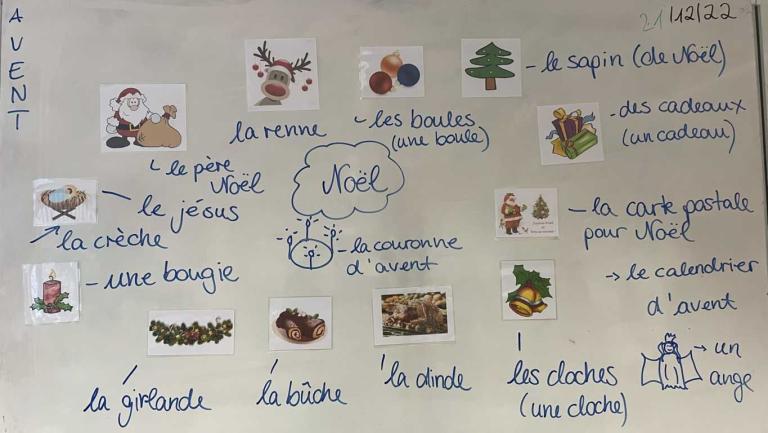 AVENT
21/12/22
le sapin (de Noël)
la renne
les boules
(une boule)
des cadeaux
(un cadeau)
le père
Noël
Noël
le jésus
la crèche
la couronne
d'avent
la carte postale
pour Noël
une bougie
le calendrier
d'avent
la girlande
la bûche
la dinde
les cloches
(une cloche)
un
ange